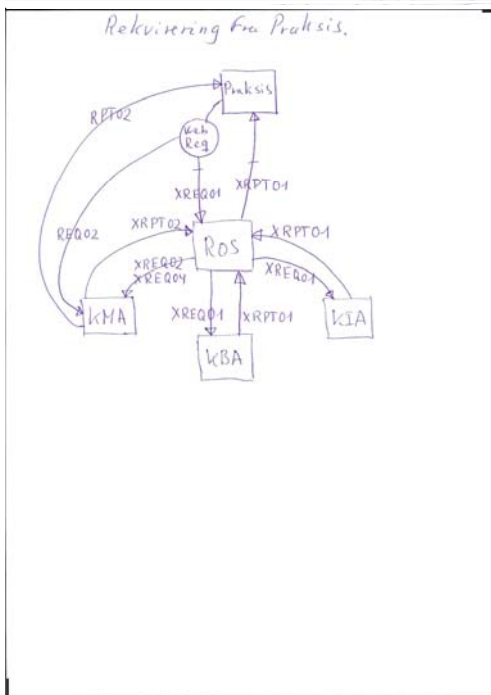 Rekvirering fra Praksis.
Praksis
RPT02
Web
Req
XREQ01
XRPT01
REQ02
XRPT02
ROS
XRPT01
XREQ02
XREQ04
XREQ01
KMA
XREQ01
XRPT01
KIA
KBA